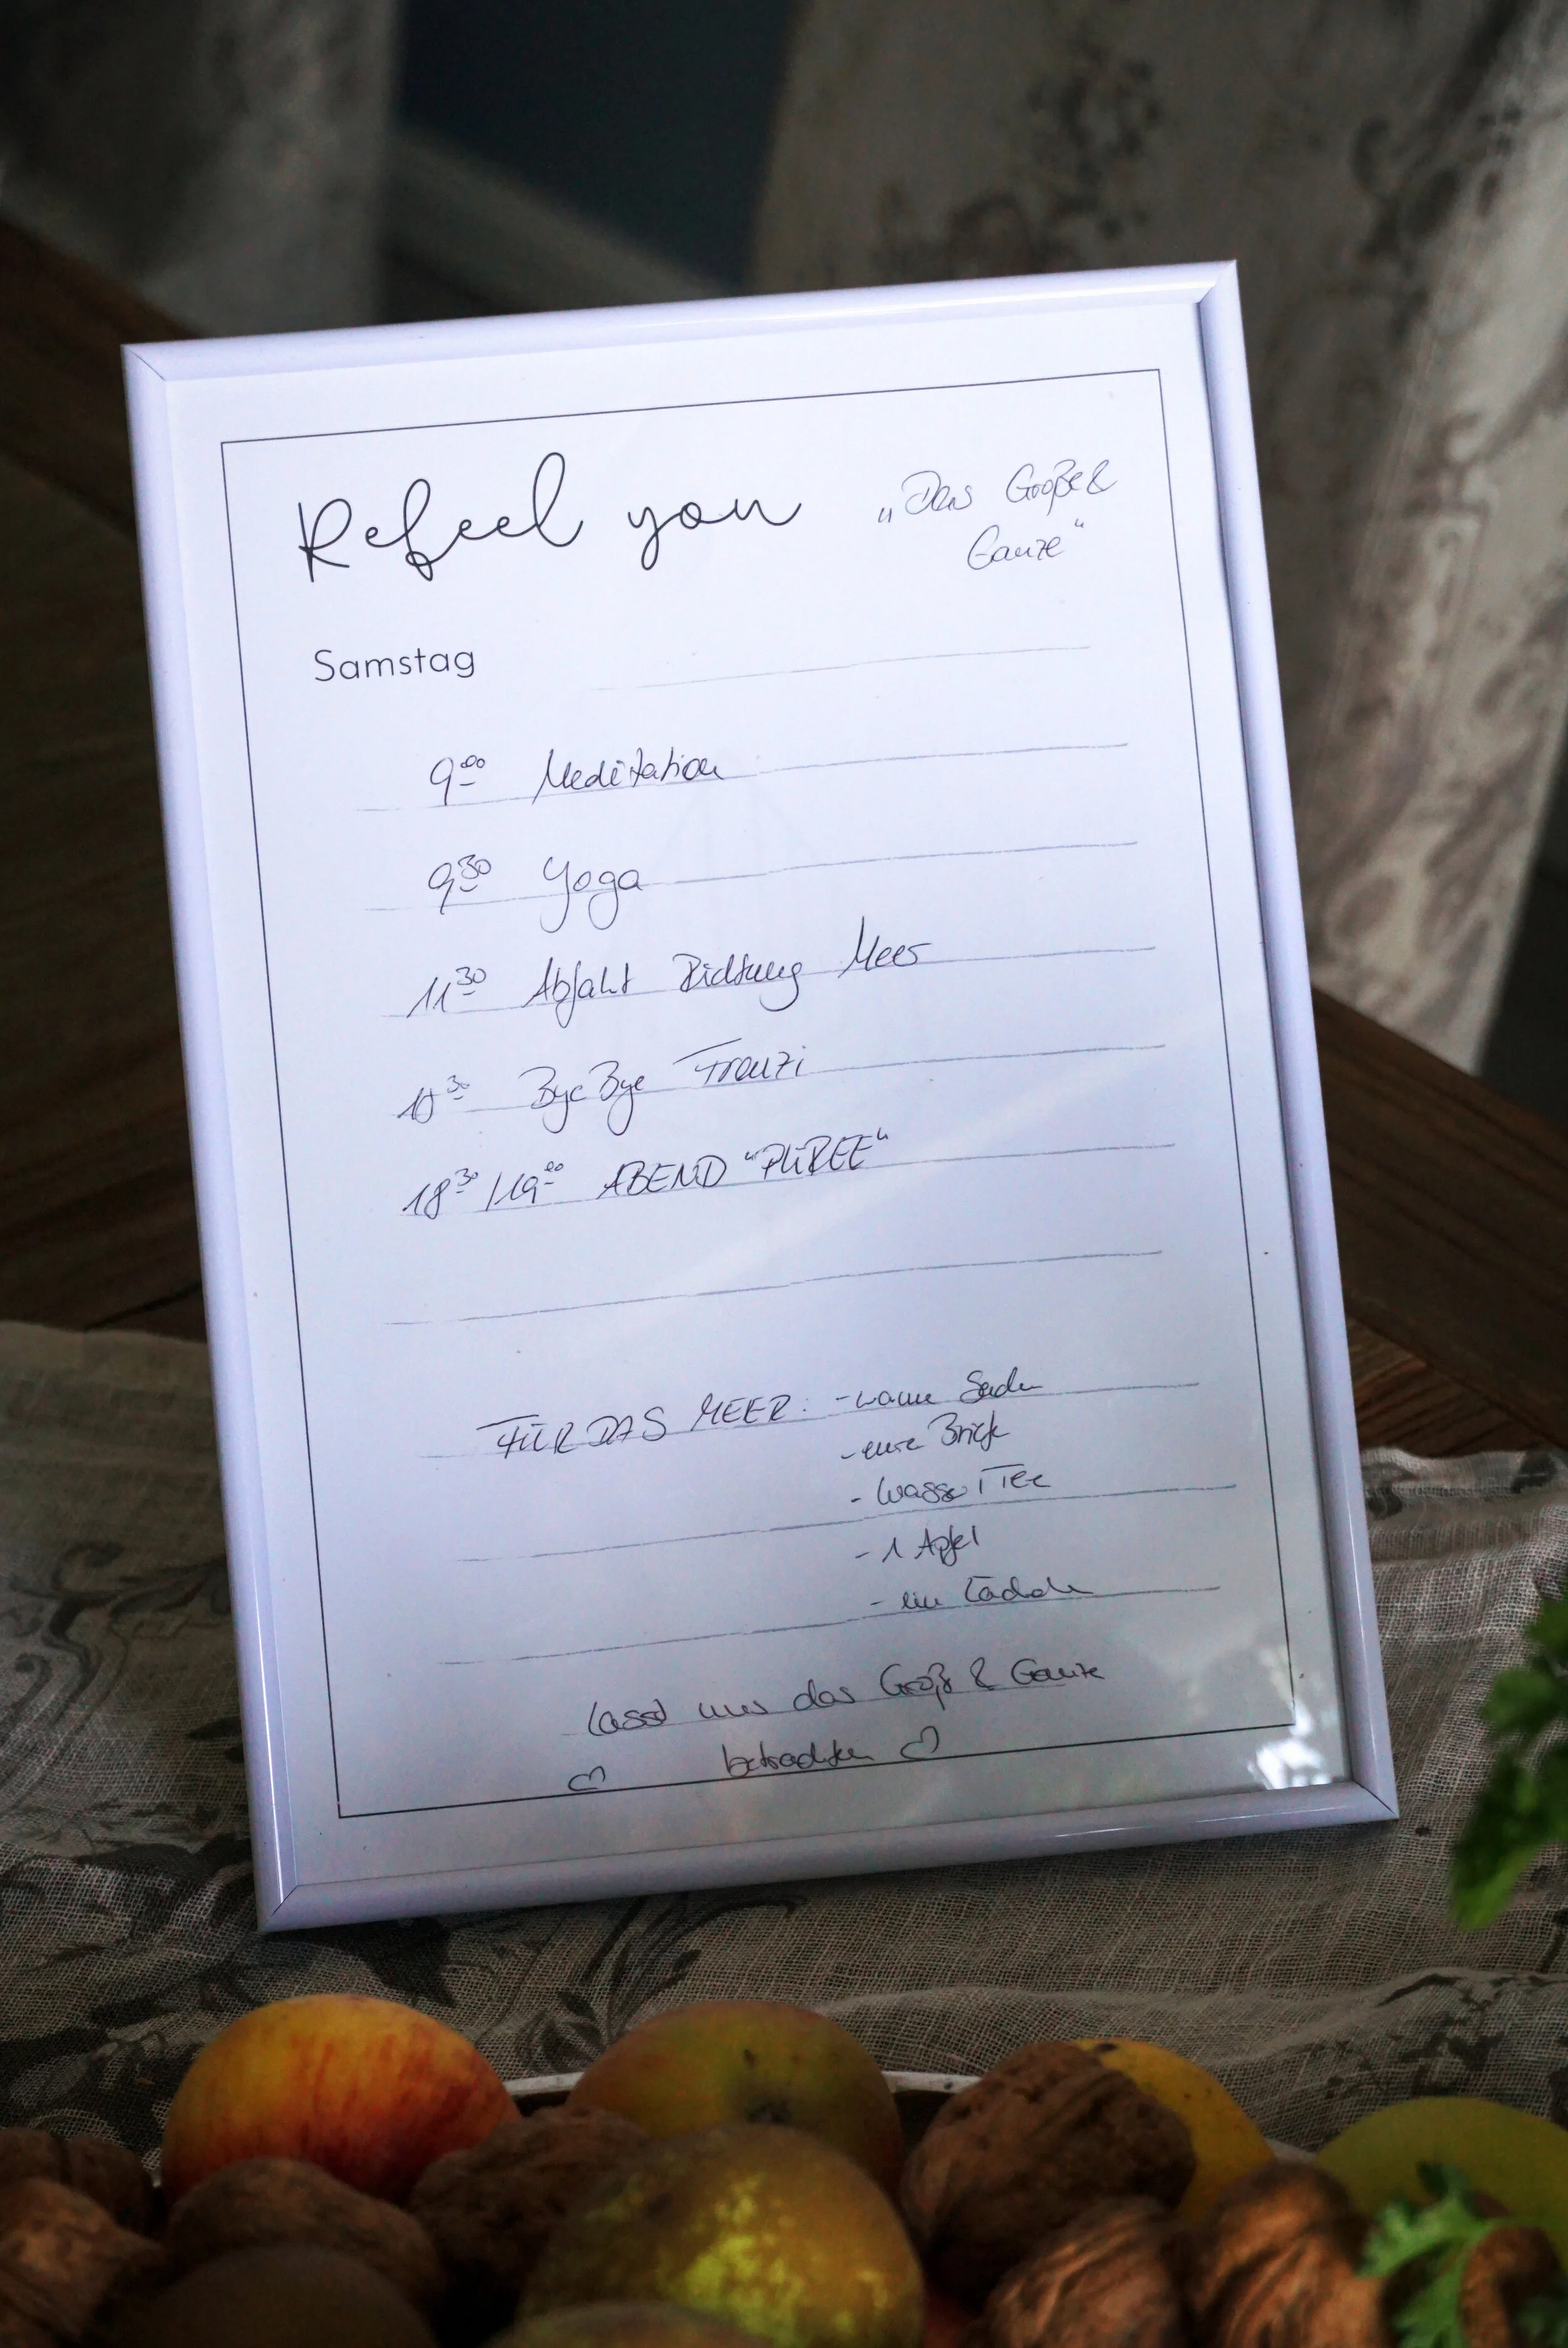 Refeel you
„Das Große &
Ganze“
Samstag
9⁰⁰ Meditation
9³⁰ Yoga
11³⁰ Abfahrt Richtung Meer
ByeBye Franzi
18³⁰/19⁰⁰ ABEND "PÜREE"
FÜR DAS MEER: - warme Sachen
- eure Briefe
- Wasser/Tee
- 1 Apfel
- ein Lächeln
lasst uns das Große & Ganze
♡ betrachten ♡